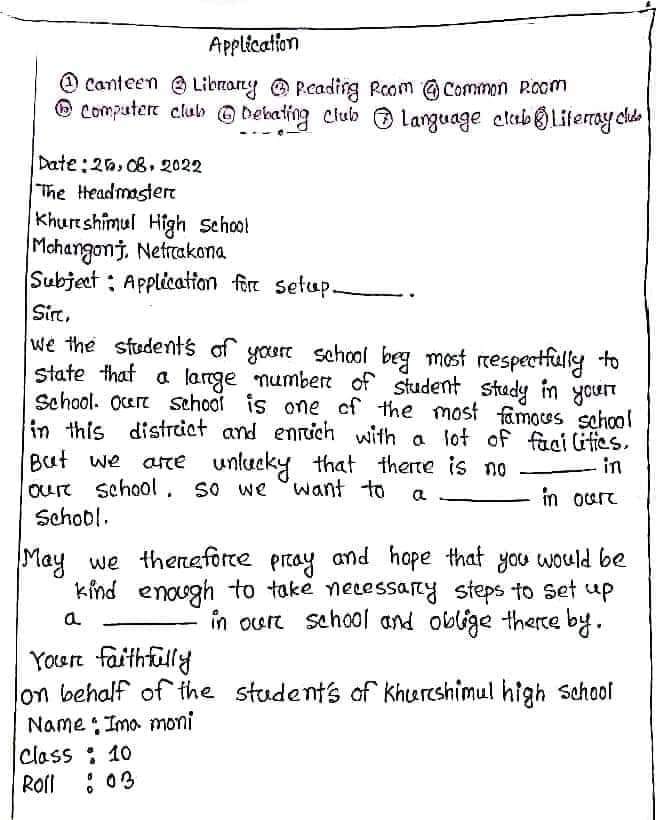 Application
① Canteen ② Library ③ Reading Room ④ Common Room
⑤ Computer club ⑥ Debating club ⑦ Language club ⑧ Literray club
Date : 25, 08, 2022
The Headmaster
Khurshimul High School
Mohangonj, Netrakona
Subject : Application for setup ______ .
Sir,
We the student's of your school beg most respectfully to
state that a large number of student study in your
School. Our school is one of the most famous school
in this district and enrich with a lot of facilities.
But we are unlucky that there is no ______ in
our school. so we want to a ______ in our
School.
May we therefore pray and hope that you would be
kind enough to take necessary steps to set up
a ______ in our school and oblige there by.
Your faithfully
on behalf of the student's of Khurshimul high school
Name : Ima moni
Class : 10
Roll : 03